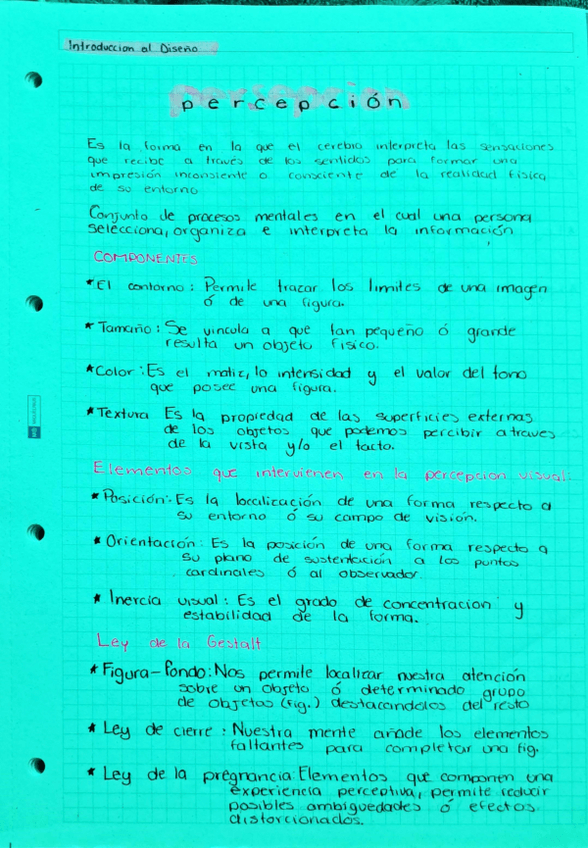 Introduccion al Diseño
percepción
Es la forma en la que el cerebro interpreta las sensaciones
que recibe a través de los sentidos para formar una
impresión inconsiente o consciente de la realidad física
de su entorno
Conjunto de procesos mentales en el cual una persona
selecciona, organiza e interpreta la información
COMPONENTES
*El contorno: Permite trazar los limites de una imagen
ó de una figura.
*Tamaño: Se vincula a que tan pequeño ó grande
resulta un objeto físico.
*Color: Es el matiz, lo intensidad y el valor del tono
que posee una figura.
*Textura Es la propiedad de las superficies externas
de los objetos que podemos percibir atraves
de la vista y/o el tacto.
Elementos que intervienen en la percepcion visual:
*Posición: Es la localización de una forma respecto a
su entorno ó su campo de visión.
*Orientación: Es la posición de una forma respecto a
su plano de sustentación a los puntos
cardinales ó al observador.
*Inercia visual: Es el grado de concentracion y
estabilidad de la forma.
Ley de la Gestalt
*Figura-fondo: Nos permite localizar nuestra atención
sobre un objeto ó determinado grupo
de objetos (fig.) destacandolos del resto
*Ley de cierre: Nuestra mente añade los elementos
faltantes para completar una fig.
*Ley de la pregnancia: Elementos que componen una
experiencia perceptiva, permite reducir
posibles ambiguedades ó efectos
distorcionados.